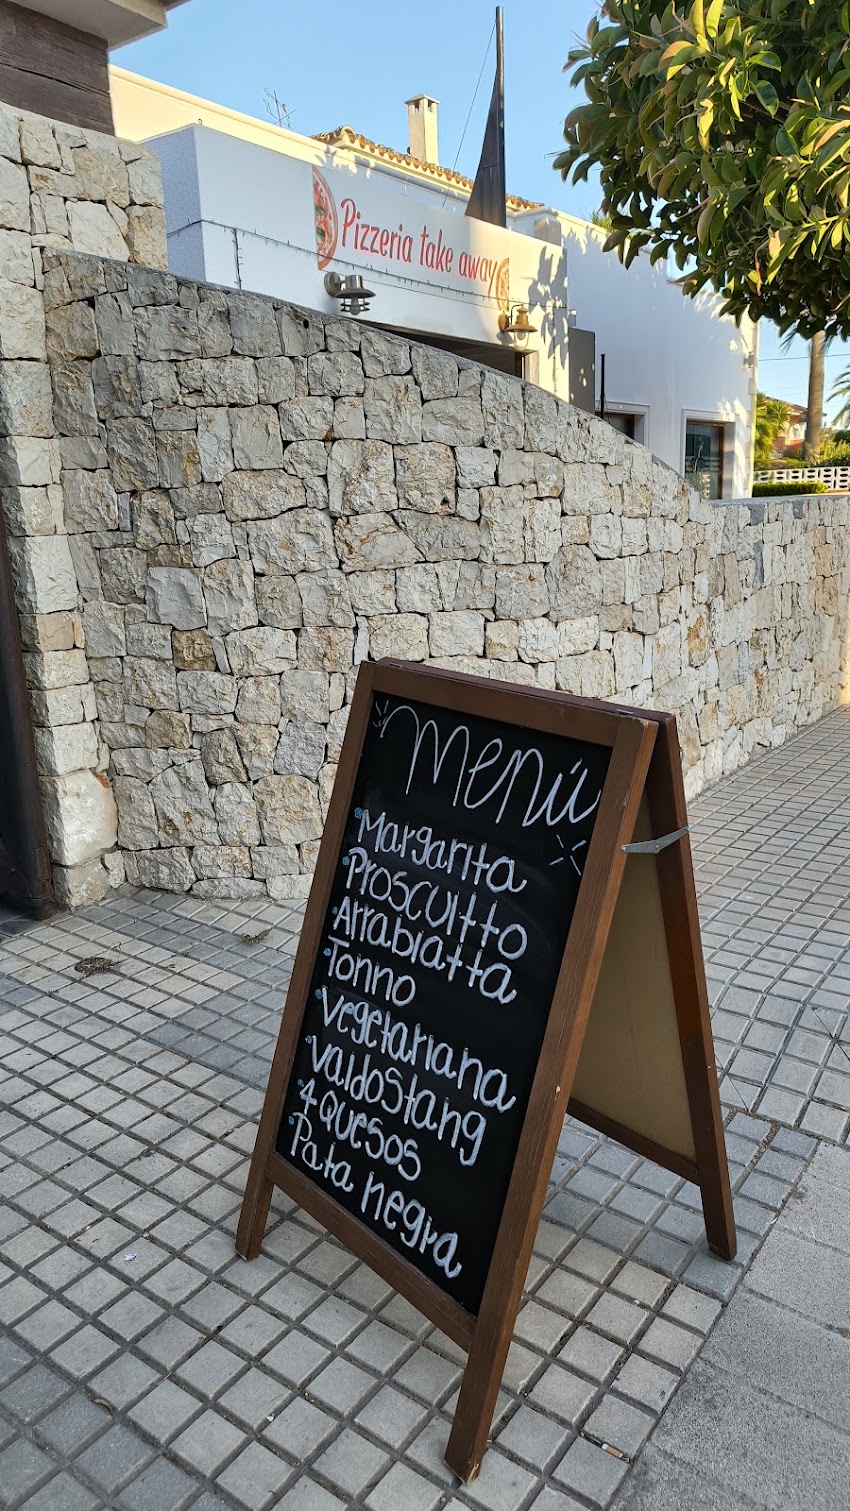 Pizzeria take away
Menú
Margarita
Proscuitto
Arrabiatta
Tonno
Vegetariana
Valdostang
4 Quesos
Pata negra